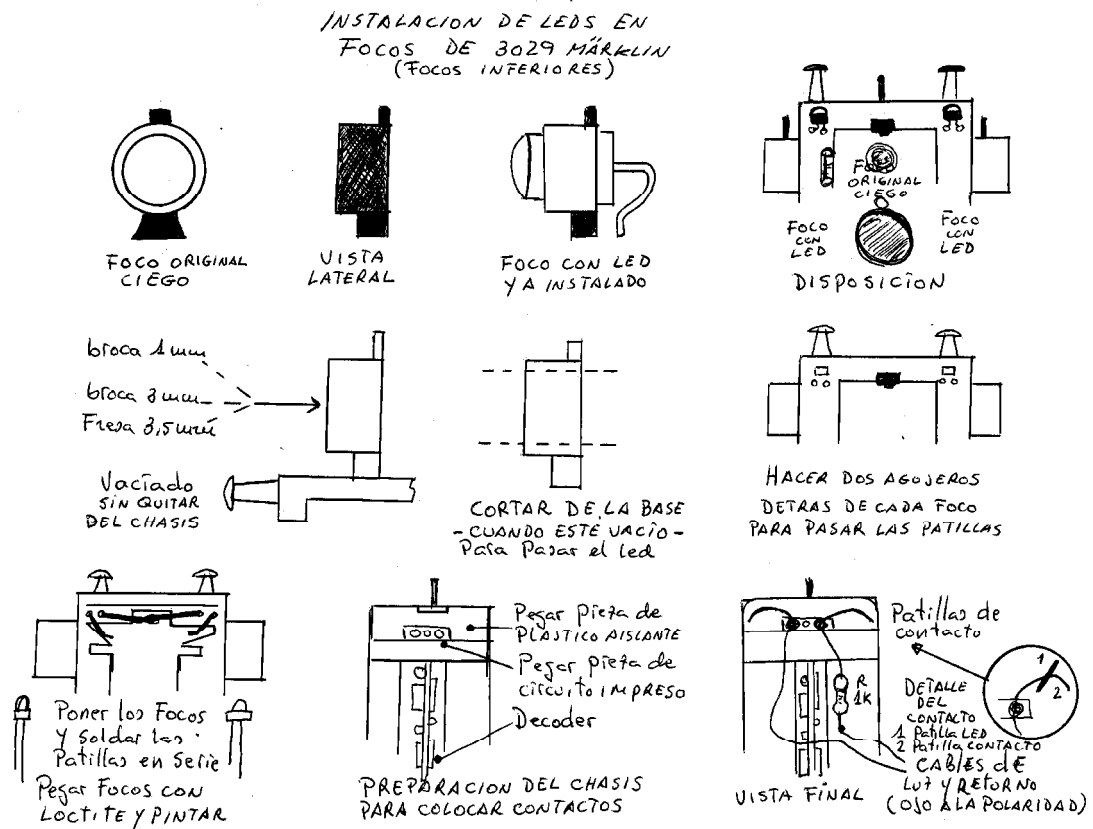 INSTALACION DE LEDS EN
FOCOS DE 3029 MÄRKLIN
(FOCOS INFERIORES)
FOCO ORIGINAL
CIEGO
VISTA
LATERAL
FOCO CON LED
YA INSTALADO
FOCO
ORIGINAL
CIEGO
FOCO
CON
LED
FOCO
CON
LED
DISPOSICION
broca 1 mm
broca 3 mm
Fresa 3,5 mm
Vaciado
SIN QUITAR
DEL CHASIS
CORTAR DE LA BASE
- CUANDO ESTÉ VACIO -
Para Pasar el led
HACER DOS AGUJEROS
DETRAS DE CADA FOCO
PARA PASAR LAS PATILLAS
Poner los Focos
y soldar las
Patillas en Serie
Pegar Focos con
LOCTITE Y PINTAR
Pegar pieza de
PLASTICO AISLANTE
Pegar pieza de
circuito IMPRESO
Decoder
PREPARACION DEL CHASIS
PARA COLOCAR CONTACTOS
R
1K
VISTA FINAL
Patillas de
contacto
1
2
DETALLE
DEL
CONTACTO
1 Patilla LED
2 Patilla CONTACTO
CABLES de
LUZ Y RETORNO
(OJO A LA POLARIDAD)